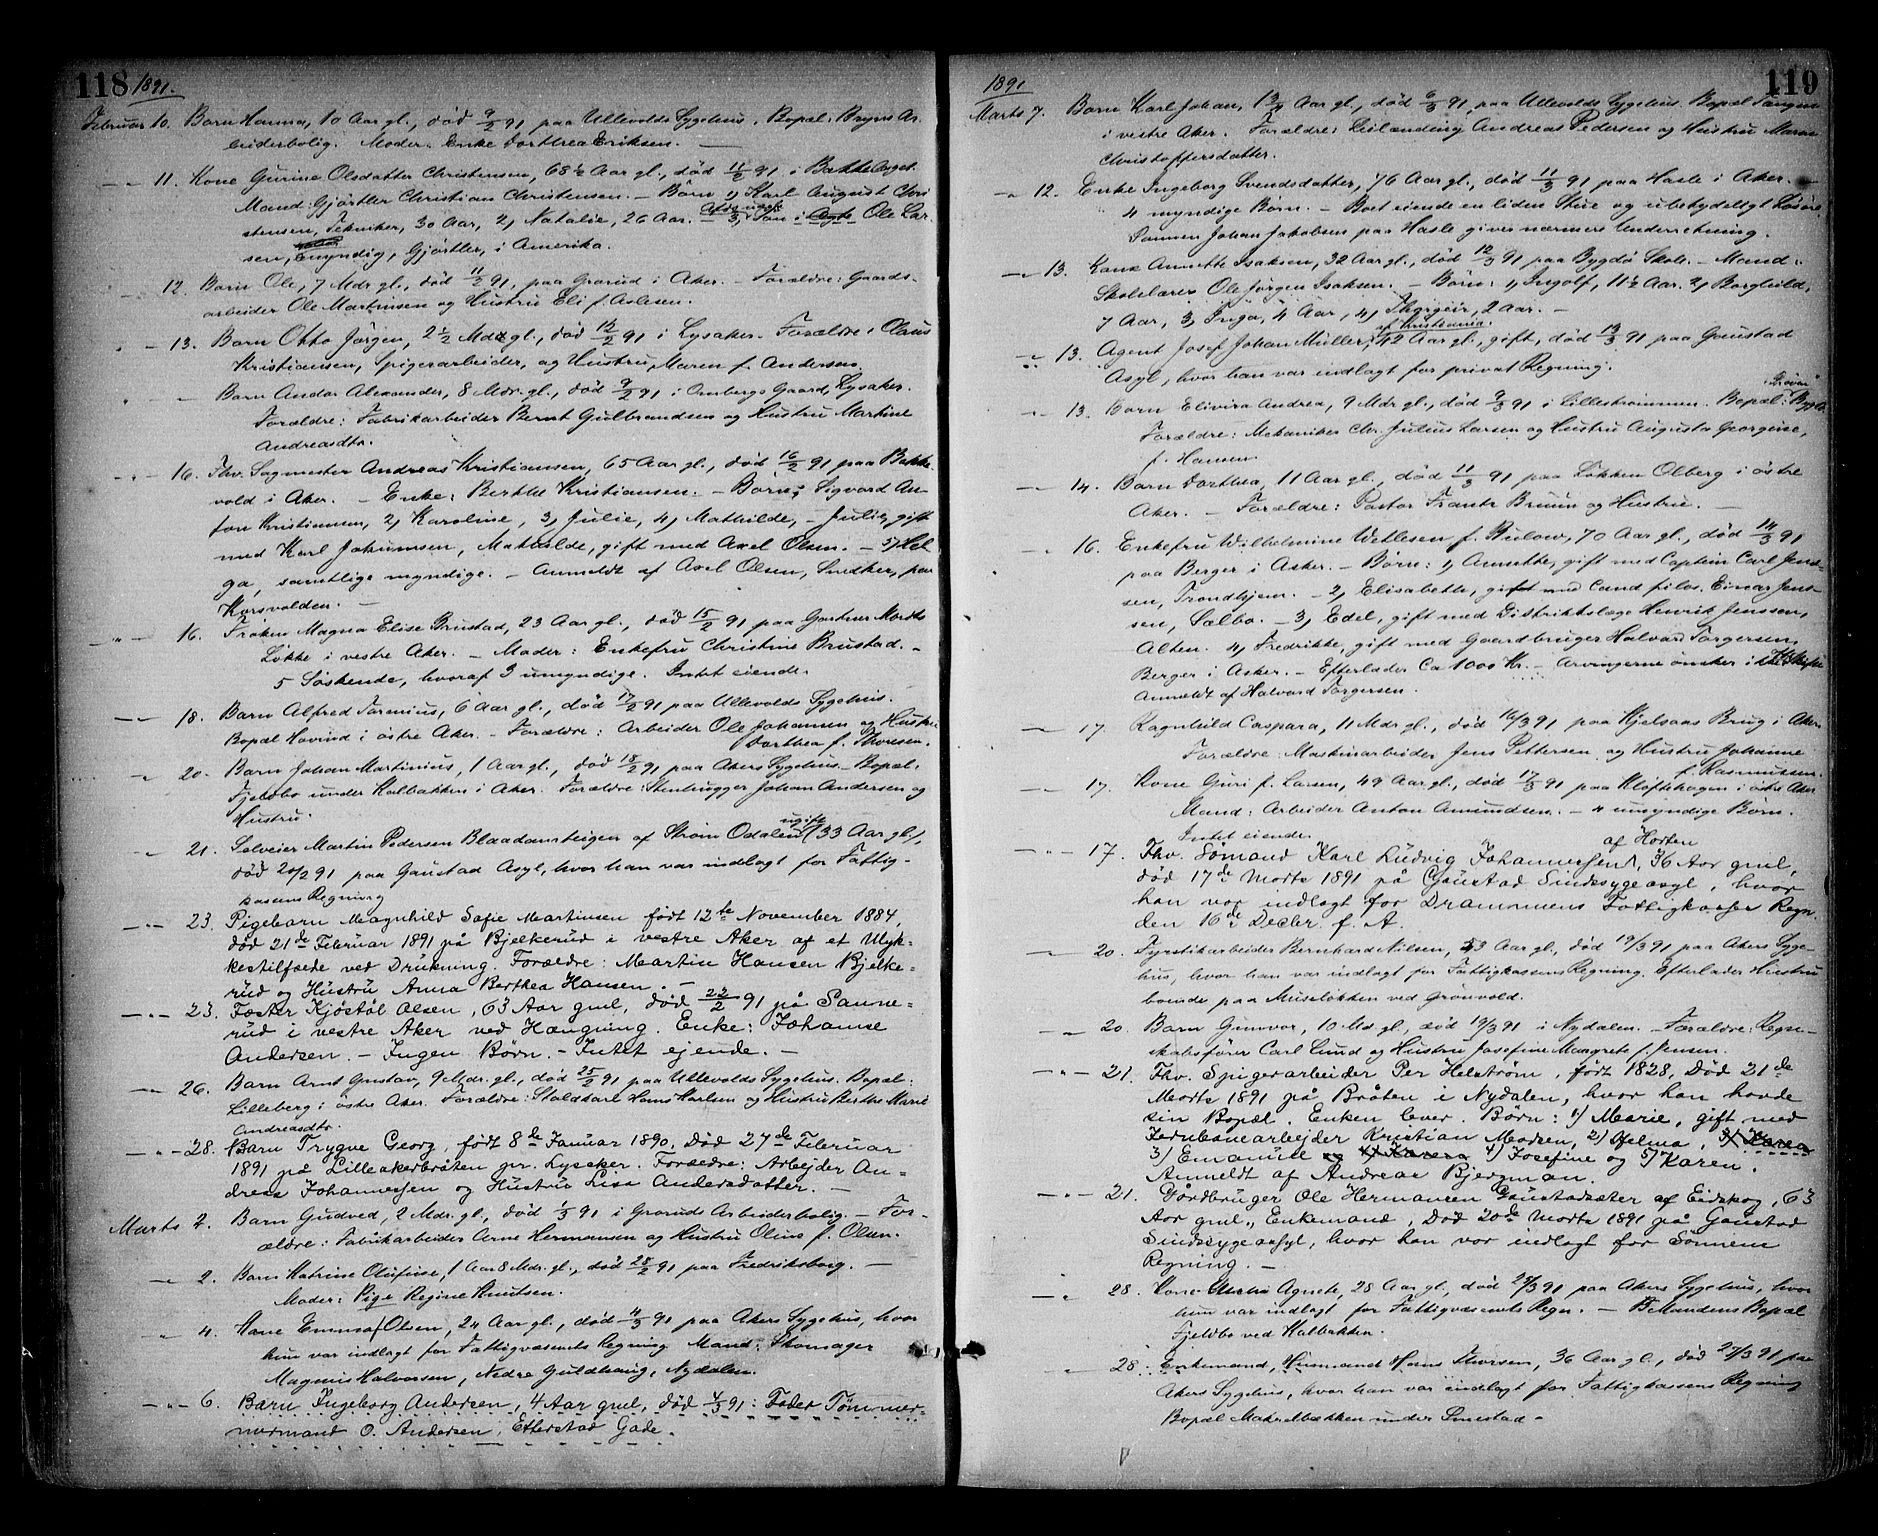 118 1891.
Februar 10. Barn Hanna, 10 Aar gl., död 9/2 91 paa Ullevolds Sygehus. Bopæl: Bryns Ar-
beiderbolig. Moder. Enke Dorthea Eriksen. —
—„— 11. Kone Gurine Olsdatter Christensen, 68½ Aar gl., död 11/2 91 i
Mand: Gjörtler Christian Christensen. — Börn 1, Karl August Chri
stensen, Tekniker, 30 Aar, 2, Natalie, 26 Aar. — 3, Sön i Ole Lar-
sen, myndig, Gjörtler, i Amerika.
12. Barn Ole, 7 Mdr gl., död 11/2 91, paa Grorud i Aker. — Forældre: Gaards-
arbeider Ole Martinsen og Hustru Eli f. Aslesen.
„ — 13. Barn Otto Jörgen, 2½ Mdr gl., död 12/2 91 i Lysaker. Forældre: Olaus
Kristiansen, Spigerarbeider, og Hustru Maren f. Andersen.
„ Barn Andor Alexander, 8 Mdr. gl., död 9/2 91 i Ombergs Gaard, Lysaker.
Forældre: Fabrikarbeider Bernt Gulbrandsen og Hustru Martine
Andreasdtr.
—„— 16. Fhv. Sagmester Andreas Kristiansen, 65 Aar gl., död 16/2 91 paa Bakke
vold i Aker. — Enke: Berthe Kristiansen. — Börn: Sigvard An-
ton Kristiansen, 2, Karoline, 3, Julie, 4, Mathilde, — Julie, gift
med Karl Johannsen, Mathilde, gift med Axel Olsen. — 5, Hel
ga, samtlige myndige. — Anmeldt af Axel Olsen, Snedker, paa
Korsvolden. —
„ — 16. Fröken Magna Elise Brustad, 23 Aar gl., död 15/2 91 paa Gartner
Lökke i vestre Aker. — Moder: Enkefru Christine Brustad. —
5 Söskende, hvoraf 3 umyndige. Intet eiende.
—„— 18. Barn Alfred, 6 Aar gl., död 17/2 91 paa Ullevolds Sygehus.
Bopæl Hovind i östre Aker. — Forældre: Arbeider Ole Johansen og Hustru
Dorthea f. Thoresen.
„ 20. Barn Johan Martinius, 1 Aar gl., död 18/2 91 paa Akers Sygehus. Bopæl:
Fjeldbo under Kalbakken i Aker. Forældre: Stenhugger Johan Andersen og
Hustru.
„ 21. Selveier Martin Pedersen af Ström Odalen (ugift 33 Aar gl.),
död 20/2 91 paa Gaustad Asyl, hvor han var indlagt for Fattig-
kassens Regning
—„— 23. Pigebarn Magnhild Sofie Martinsen födt 12te November 1884,
död 21de Februar 1891 på Bjelkerud i vestre Aker af et Ulyk-
kestilfæde ved Drukning. Forældre: Martin Hansen Bjelke-
rud og Hustru Anna Berthea Hansen. —
—„— 23. Kjöstöl Olsen, 63 Aar gml, död 22/2 91 på Sanne-
rud i vestre Aker ved Hængning. Enke: Johanne
Andersen. — Ingen Börn. — Intet ejende. —
—„— 26. Barn Arnt Gustav, 9 Mdr. gl., död 25/2 91 paa Ullevolds Sygehus. Bopæl:
Lilleberg i östre Aker. Forældre: Staldkarl Hans Karlsen og Hustru Berthe Marie
Andreasdtr.
—„— 28. Barn Trygve Georg, födt 8de Januar 1890, Död 27de Februar
1891 på Lilleakerbråten pr. Lysaker. Forældre: Arbejder An-
dreas Johannessen og Hustru Lisa Andersdatter. —
Marts 2. Barn Gudved, 2 Mdr. gl., död 1/3 91 i Groruds Arbeiderbolig. — For-
ældre: Fabrikarbeider Arne Hermansen og Hustru Oline f. Olsen.
—„— 2. Barn Katrine Olufine, 1 Aar 8 Mdr. gl., död 28/2 91 paa Fredriksborg. —
Moder: Pige Regine Knutsen.
„ 4. Kone Emma Olsen, 24 Aar gl., död 4/3 91 paa Akers Sygehus, hvor
hun var indlagt for Fattigvæsenets Regning Mand: Skomager
Magnus Halvorsen, Nedre Guldhaug, Nydalen.
—„— 6. Barn Ingeborg Andersen, 4 Aar gml, död 4/3 91: Fader Tömmer-
mand O. Andersen, Etterstad Gade.
1891 119
Marts 7. Barn Karl Johan, 1¾ Aar gl., död 6/3 91, paa Ullevolds Sygehus. Bopæl
i vestre Aker. Forældre: Leilænding Andreas Pedersen og Hustru Maren
Christoffersdatter.
„ 12. Enke Ingeborg Svendsdatter, 76 Aar gl., död 11/3 91 paa Hasle i Aker.
4 myndige Börn. — Boet eiende en liden Stue og ubetydeligt Lösöre
Sönnen Johan Jakobsen paa Hasle giver nærmere Underretning.
—„— 13. Kone Annette Isaksen, 32 Aar gl., död 12/3 91 paa Bygdö Skole. — Mand:
Skolelærer Ole Jörgen Isaksen. — Börn: 1, Ingolf, 11½ Aar. 2, Borghild,
7 Aar, 3, Inga, 4 Aar, 4, Thorgeir, 2 Aar. —
„ 13. Agent Josef Johan Müller, af Kristiania. 42 Aar gl., gift, död 13/3 91 paa Gaustad
Asyl, hvor han var indlagt for privat Regning.
„ 13. Barn Elivira Andrea, 9 Mdr gl., död 9/3 91 i Lilleströmmen. Bopæl:
Forældre: Mekaniker Chr. Julius Larsen og Hustru Augusta Georgine,
f. Hansen.
—„— 14. Barn Dorthea, 11 Aar gl., död 11/3 91 paa Lökken Olberg i östre
Aker. — Forældre: Pastor Frantz Bruun og Hustru. —
„ 16. Enkefru Wilhelmine Wetlesen f. Bülow, 70 Aar gl., död 14/3 91
paa Berger i Asker. — Börn: 1, Annette, gift med Captein Carl Jens-
sen, Trondhjem. — 2, Elisabeth, gift med Cand filos. Einar Jens-
sen, Sælbo. — 3, Edel, gift med Distriktslæge Henrik Jenssen,
Alten. 4, Fredrikke, gift med Gaardbruger Halvard Torgersen,
Berger i Asker. — Efterlader Ca 1000 Kr. — Arvingerne önsker
Anmeldt af Halvard Torgersen.
—„— 17. Ragnhild Caspara, 11 Mdr gl., död 16/3 91 paa Kjelsaas Brug i Aker.
Forældre. Maskinarbeider Jens Pettersen og Hustru Johanne
f. Rasmussen.
—„— 17. Kone Guri f. Larsen, 49 Aar gl., död 17/3 91 paa Kloftehagen i östre Aker
Mand: Arbeider Anton Amundsen. — 4 umyndige Börn.
Intet eiende.
—„— 17. Fhv. Sömand Karl Ludvig Johannessen af Horten, 36 Aar gml,
död 17de Marts 1891 på Gaustad Sindssygeasyl, hvor
han var indlagt for Drammens Fattigkasses Regn.
den 16de Decbr. f. A.
—„— 20. Fyrstikarbeider Bernhard Nilsen, 53 Aar gl., död 19/3 91 paa Akers Syge-
hus, hvor han var indlagt for Fattigkassens Regning. Efterlader Hustru
boende paa Muselökken ved Grönvold.
—„— 20. Barn Gunvor, 10 Md gl., död 19/3 91 i Nydalen. — Forældre: Regn-
skabsförer Carl Lund og Hustru Josefine Margrete f. Jensen.
—„— 21. Fhv. Spigerarbeider Per Helström, födt 1828, Död 21de
Marts 1891 på Bråten i Nydalen, hvor han havde
sin Bopæl. Enken lever. Börn: 1) Marie, gift med
Jernbanearbejder Kristian Madsen, 2) Helma, 3) Karen
3) Emanuel og 4) Karen 4) Josefine og 5) Karen.
Anmeldt af Andreas Bjergman.
—„— 21. Gårdbruger Ole Hermansen Gaustadsæter af Eidskog, 63
Aar gml, Enkemand, Död 20de Marts 1891 på Gaustad
Sindssygeasyl, hvor han var indlagt for Sönnens
Regning. —
—„ 28. Kone Agnete, 28 Aar gl., död 27/3 91 paa Akers Sygehus, hvor
hun var indlagt for Fattigvæsenets Regn. — Mandens Bopæl
Fjeldbo ved Kalbakken.
„ 28. Enkemand, Husmand Hans Thorsen, 36 Aar gl., död 27/3 91 paa
Akers Sygehus, hvor han var indlagt for Fattigkassens Regning
Bopæl Makrelbækken under Smestad.